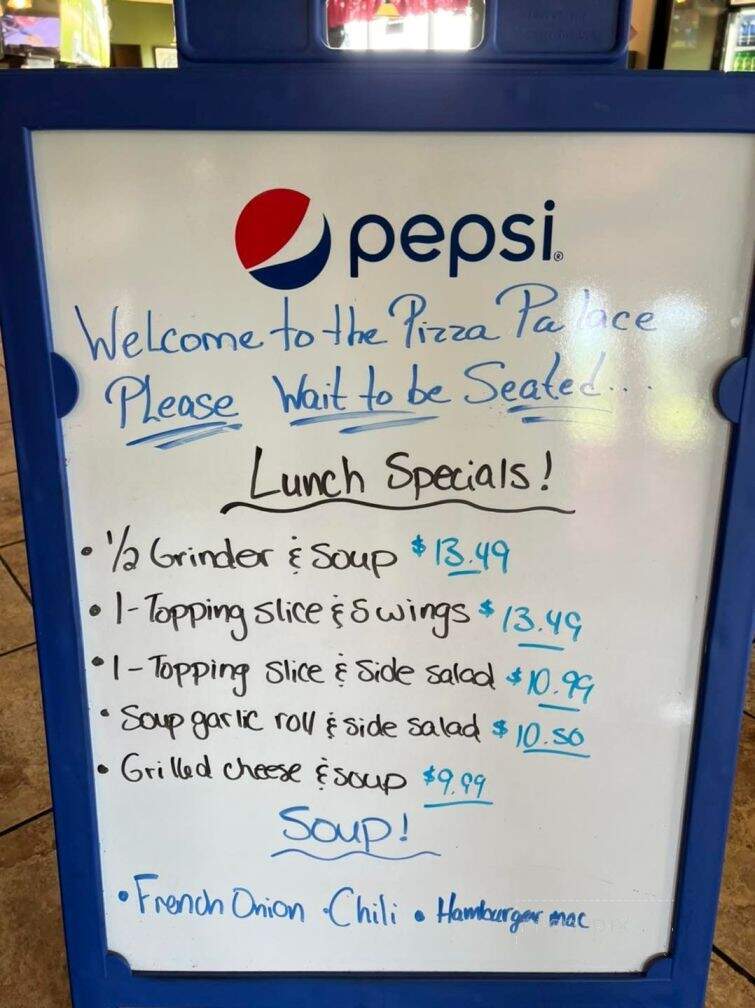 pepsi
Welcome to the Pizza Palace
Please Wait to be Seated...
Lunch Specials!
• 1/2 Grinder & Soup $13.49
• 1-Topping slice & 5 wings $13.49
• 1-Topping slice & Side salad $10.99
• Soup garlic roll & side salad $10.50
• Grilled cheese & soup $9.99
Soup!
• French Onion • Chili • Hamburger mac